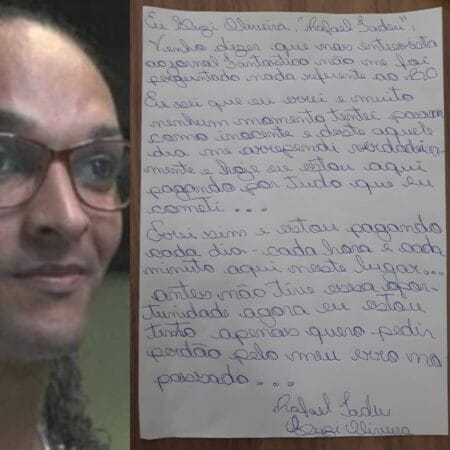 Eu Suzi Oliveira, "Rafael Tadeu",
Venho dizer que nas entrevista
ao jornal Fantástico não me foi
perguntado nada referente ao BO
Eu sei que eu errei e muito
nenhum momento tentei passar
como inocente e deste aquele
dia me arrependi verdadeira-
mente e hoje eu estou aqui
pagando por tudo que eu
cometi ...
Errei sim e estou pagando
cada dia - cada hora e cada
minuto aqui neste lugar...
antes não tive essa opor-
tunidade agora eu estou
tinto apenas quero pedir
perdão pelo meu erro no
passado ...
Rafael Tadeu
Suzi Oliveira